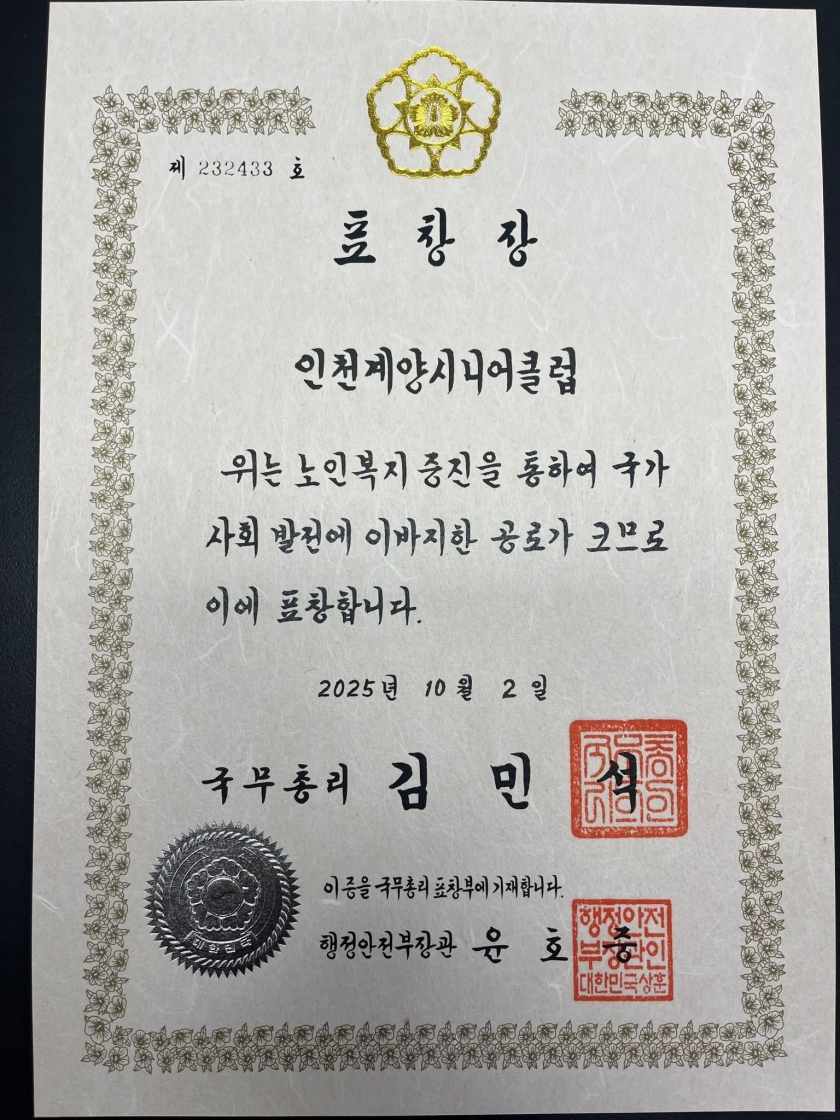 제 232433 호
표 창 장
인천계양시니어클럽
위는 노인복지 증진을 통하여 국가
사회 발전에 이바지한 공로가 크므로
이에 표창합니다.
2025년 10월 2일
국무총리 김 민 석
국무총리의인
이 증을 국무총리 표창부에 기재합니다.
행정안전부장관 윤 호 중
행정안전
부장관인
대한민국상훈
대한민국